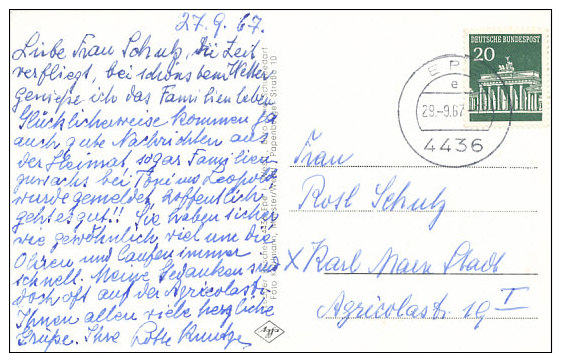 27.9.67.
Liebe Frau Schulz, die Zeit
verfliegt, bei schönstem Wetter
genieße ich das Familienleben.
Glücklicherweise kommen ja
auch gute Nachrichten aus
der Heimat, sogar Familien
zuwachs bei Toni u. Leopold
wurde gemeldet, hoffentlich
geht es gut!! Sie haben sicher
wie gewöhnlich viel um die
Ohren und laufen immer
schnell. Meine Gedanken sind
doch oft auf der Agricolastr.
Ihnen allen viele herzliche
Grüße. Ihre
DEUTSCHE BUNDESPOST
20
EP
e
29.-9.67
4436
Frau
Rosl Schulz
X Karl Marx Stadt
Agricolastr. 19 I
Papenburger Straße 10